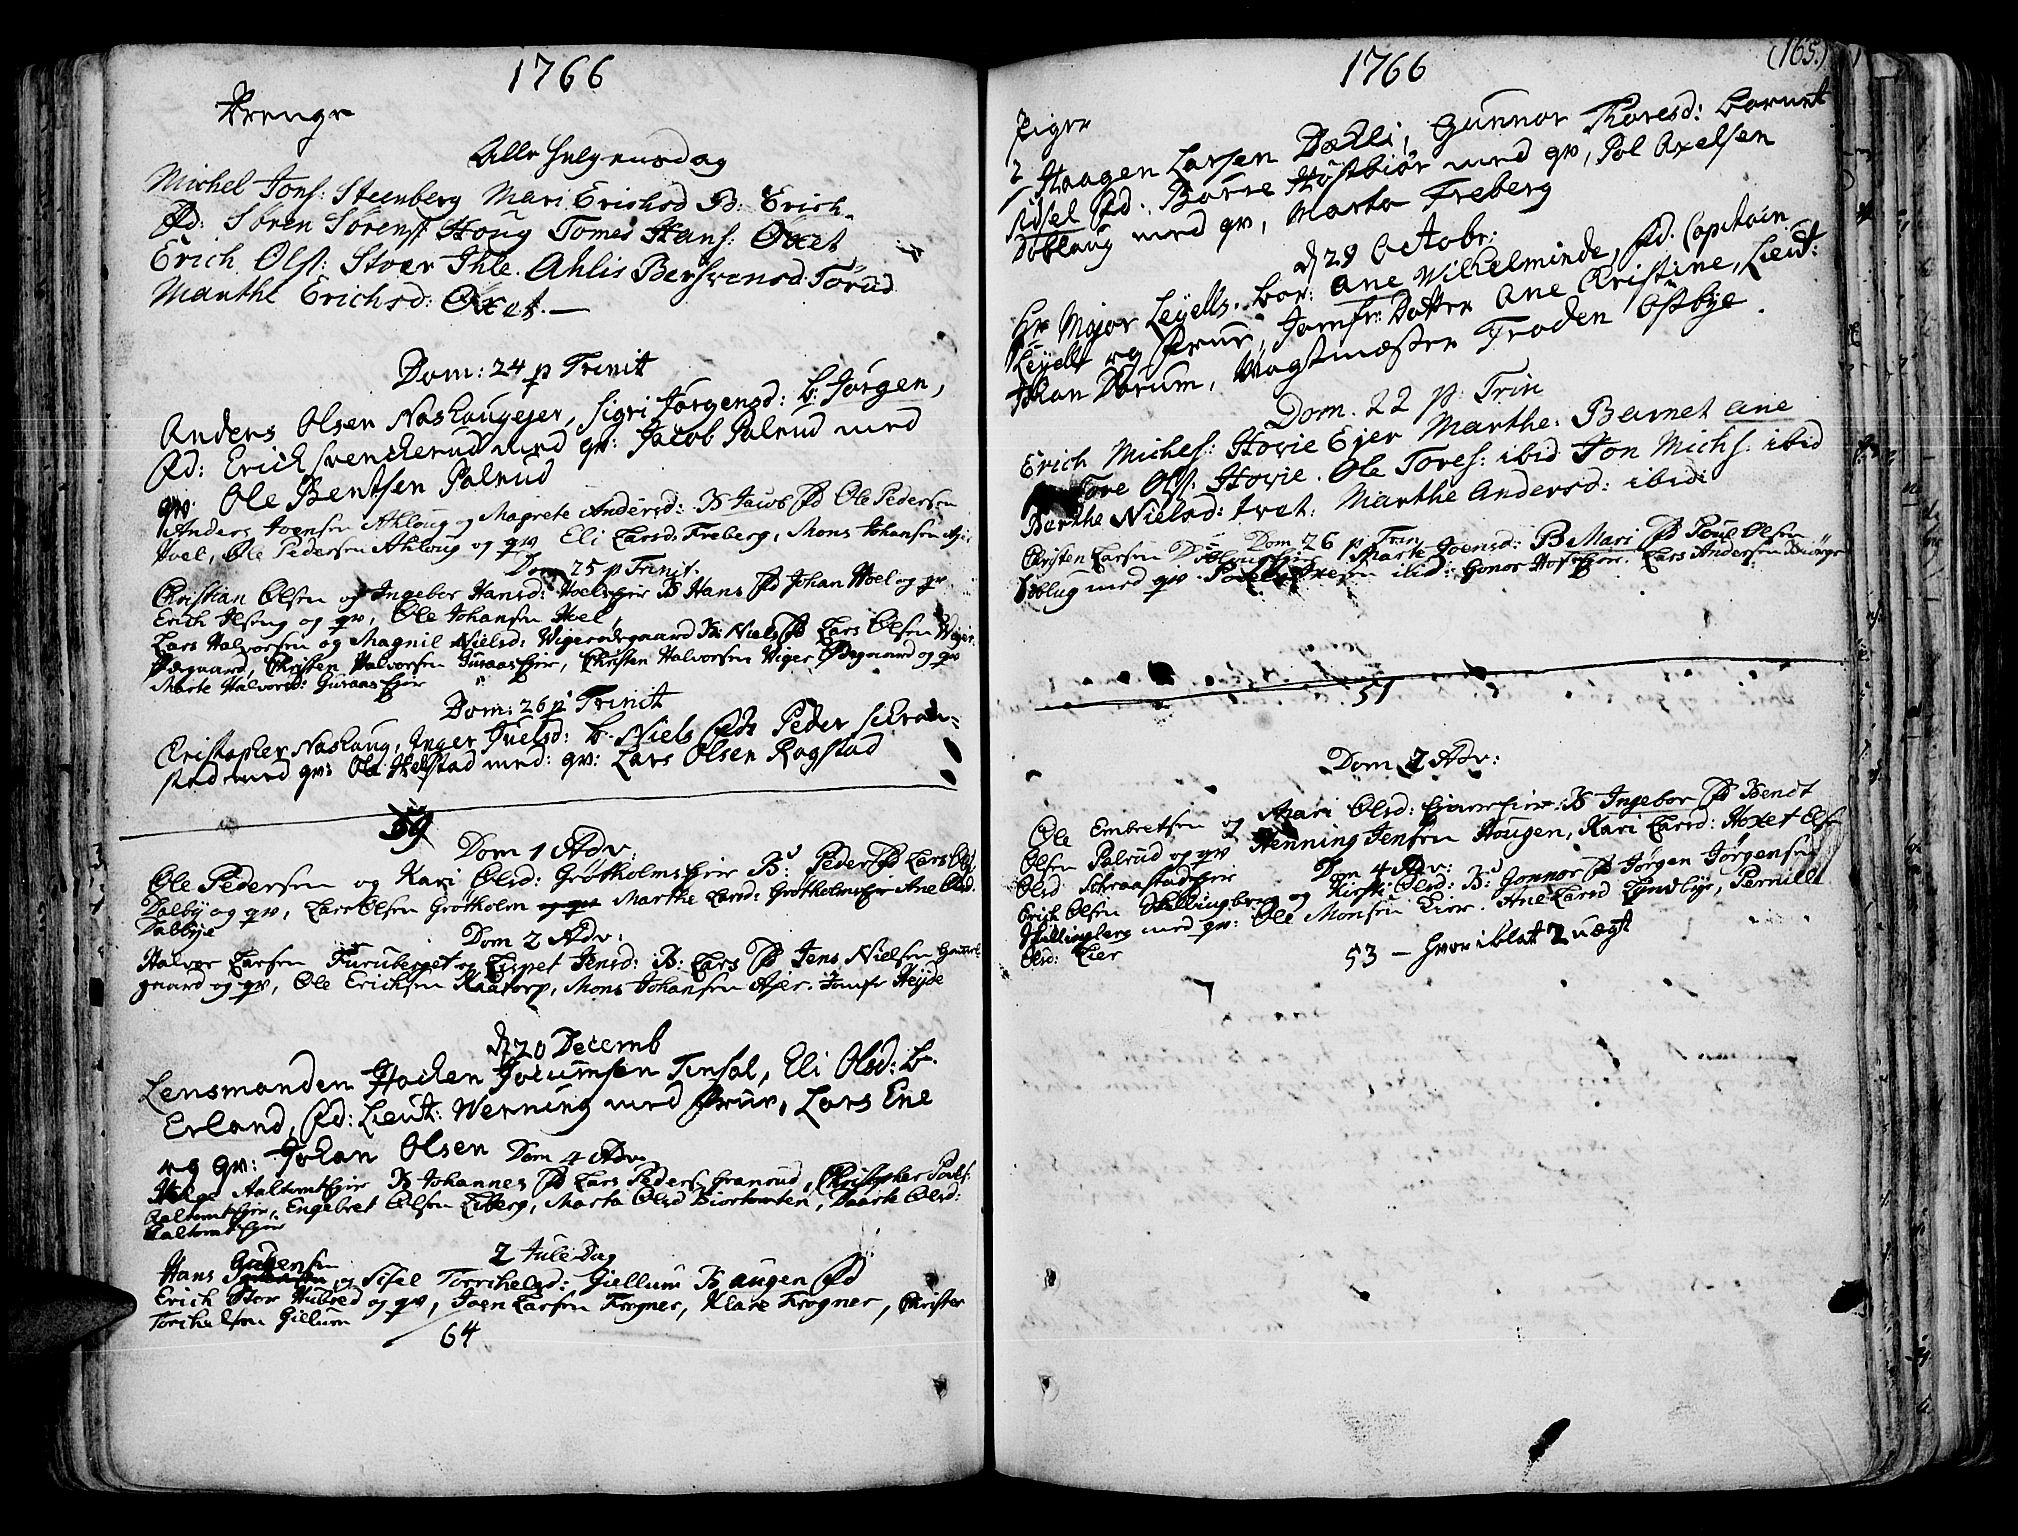 1766
Drenge
Alle Helgensdag
Michel Jons: Steenberg Mari Erichsd B: Erich
Fd: Søren Sørens Houg Tomes Hans: Oxet
Erich Ols: Stoer Ihle. Ahlis Bersvensd: Torud
Marthe Erichsd: Oxet. —
Dom: 24 p Trinit
Anders Olsen Naskougejer, Sigri Jørgensd: b: Jørgen,
Fd: Erich Svenckerud med qv: Jacob Palrud med
qv: Ole Bentsen Palrud
Anders Joensen Ahloug og Magrete Andersd: B Jacob Fd Ole Pedersen
Hoel, Ole Pedersen Ahloug og qv Eli Larsd: Freberg, Mons Johansen
Dom 25 p Trinit.
Christian Olsen og Ingebor Hansd: Hoels Eier B Hans Fd Johan Hoel og qv
Erich og qv, Ole Johansen Hoel,
Lars Halvorsen og Magnil Nielsd: Wigerødegaard B: Niels Fd Lars Olsen Wiger
Ødegaard, Christen Halvorsen Guraas Ejer, Christen Halvorsen Wiger Ødegaard og qv
Marte Halvorsd: Guraas Ejer
Dom: 26 p Trinit
Christopher Naskaug, Inger Juelsd: b. Niels Fd: Peder Schraa-
sted med qv: Ole Helstad med: qv: Lars Olsen Rogstad
59
Dom 1 Adv:
Ole Pedersen og Kari Olsd: Grøtholms Eier B: Peder Fd Lars
Dalby og qv, Lars Olsen Grøtholm og qv Marthe Larsd: Grøtholms Eier Ane Olsd:
Dalbye
Dom 2 Adv:
Halvor Larsen Furuberget og Lispet Jensd: B: Lars Fd Jens Nielsen
gaard og qv, Ole Erichsen Kaatorp, Mons Johansen Ajer. Jomfr Heyde
d 20 Decemb
Lensmanden Hacken Jocumsen Tinsal, Eli Olsd: b.
Erland, Fd: Lieut: Werning med Frue, Lars Ene
og qv: Johan Olsen Dom 4 Adv
Helge Aaltomt Ejer B Johannes Fd Lars Peders Granrud, Christopher
Aaltomt Ejer, Engebret Olsen Liberg, Marta Olsd Biørtomten, Maarte Olsd:
Aaltomt Ejer
2 Jule-Dag
Hans Gulbensen og Sisel Torrichelsd: Giellum B augen Fd
Erich Stor Hubred og qv, Joen Larsen Frogner, Klare Frogner, Christen
Torrichelsen Gillum
64
1766
(165.)
Piger
Haagen Larsen Dælli, Gunnor Thoresd: Barnet
Sidsel Fd: Børre Høstbiør med qv, Pol Axelsen
Dobloug med qv, Marta Freberg
d 29 Octobr:
Hr Major Leyells. bar: Ane Wilhelminde, Fd. Capitain
Leyell og Frue, Jomfr: Dotter Ane Kristine, Lieut:
Johan Darum, Wagtmæster Troden Østbye.
Dom. 22 p. Trin
Erich Miches: Hovie Ejer Marthe: Barnet Ane
Tore Ols: Hovie. Ole Tores: ibid Jon Michs: ibid
Berthe Nielsd: Tvet: Marthe Andersd: ibid:
Dom 26 p Trin
Christen Larsen Marte Joensd: B Mari Fd Poul Olsen
Doblug med qv. ibid: Gonor Lars Andersen
51
Dom 2 Adv:
Ole Embretsen og Mari Olsd: B Ingebor Fd Bendt
Olsen Palrud og qv Henning Jensen Hougen, Kari Larsd: Hoxet
Olsd Schraastad Ejer
Dom 4 Adv:
Erich Olsen Skillingberg og Kirsti Olsd: B: Gonnor Fd Jørgen Jørgensen
Skillingberg med qv: Ole Monsen Lier. Ane Larsd Lyndbye, Pernille
Olsd: Lier
53 — hvoriblat 2 uægt